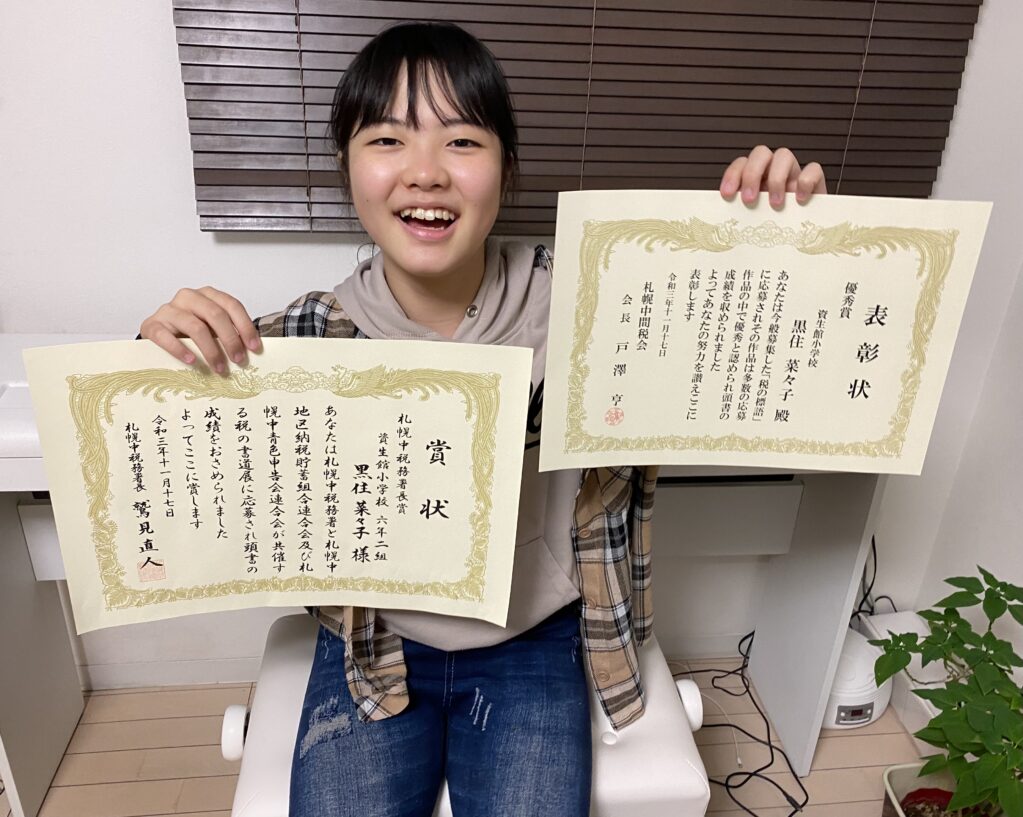 賞状
札幌中税務署長賞
資生館小学校 六年二組
黒住 菜々子 様
あなたは札幌中税務署と札幌中
地区納税貯蓄組合連合会及び札
幌中青色申告会連合会が共催す
る税の書道展に応募され頭書の
成績をおさめられました
よってここに賞します
令和三年十一月十七日
札幌中税務署長 鷲見直人
表彰状
優秀賞
資生館小学校
黒住 菜々子 殿
あなたは今般募集した「税の標語」
に応募されその作品は多数の応募
作品の中で優秀と認められ頭書の
成績を収められました
よってあなたの努力を讃えここに
表彰します
令和三年十一月十七日
札幌中間税会
会長 戸澤 亨